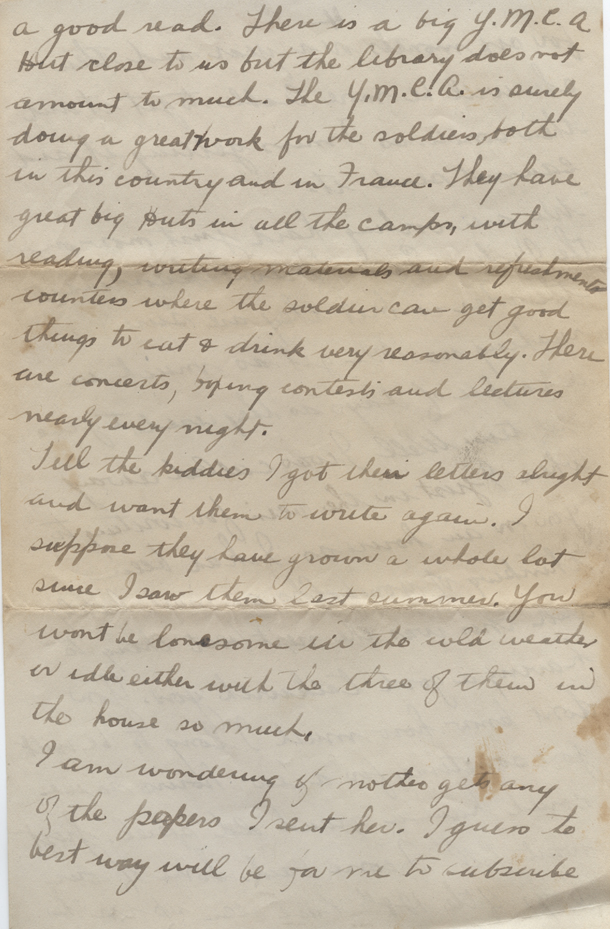 a good read. There is a big Y.M.C.A
Hut close to us but the library does not
amount to much. The Y.M.C.A. is surely
doing a great work for the soldiers, both
in this country and in France. They have
great big Huts in all the camps, with
reading, writing materials and refreshments
counters where the soldier can get good
things to eat & drink very reasonably. There
are concerts, boxing contests and lectures
nearly every night.
Tell the kiddies I got their letters alright
and want them to write again. I
suppose they have grown a whole lot
since I saw them last summer. You
wont be lonesome in the cold weather
or idle either with the three of them in
the house so much.
I am wondering if mother gets any
of the papers I sent her. I guess to
best way will be for me to subscribe